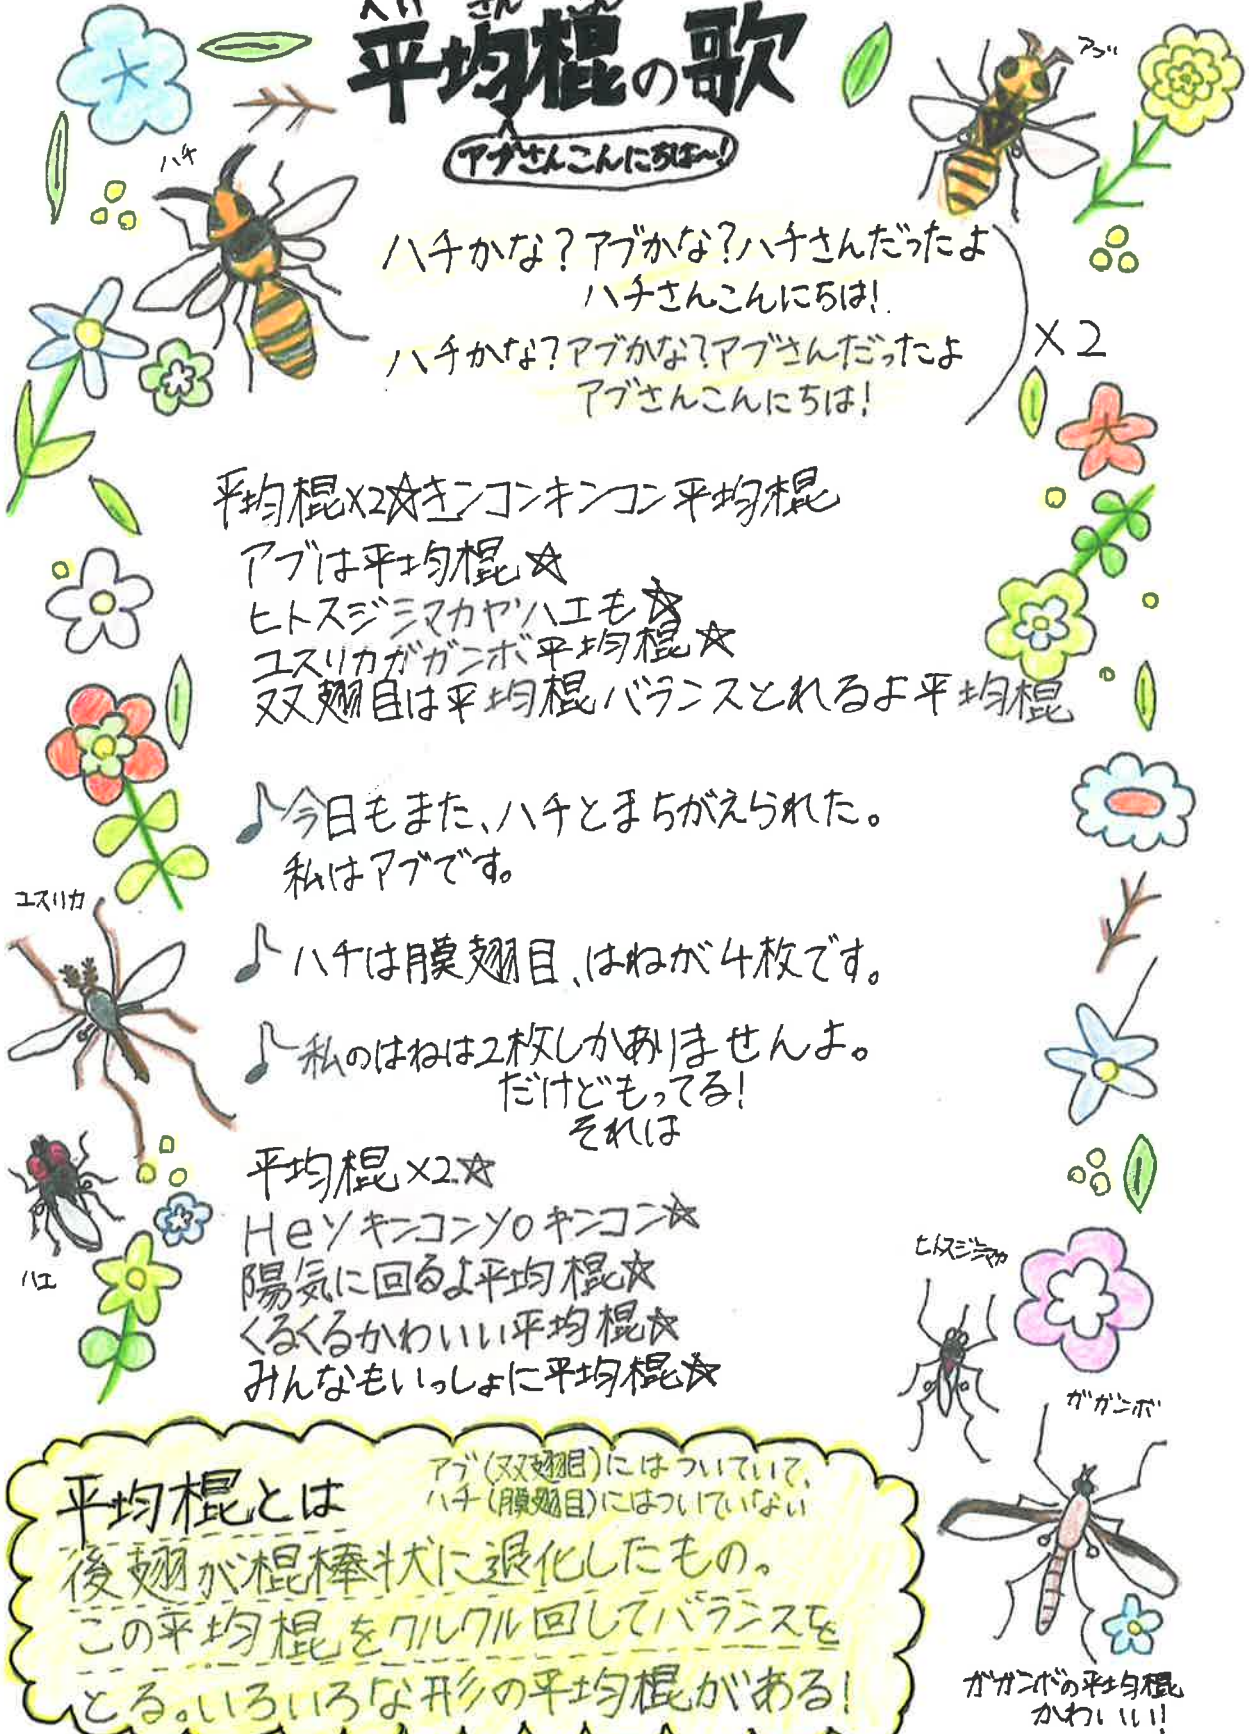 平均棍の歌
アブさんこんにちは〜!
ハチ
アブ
ハチかな?アブかな?ハチさんだったよ
ハチさんこんにちは!
ハチかな?アブかな?アブさんだったよ
アブさんこんにちは!
×2
平均棍×2☆キンコンキンコン平均棍
アブは平均棍☆
ヒトスジシマカヤハエも☆
ユスリカガガンボ平均棍☆
双翅目は平均棍バランスとれるよ平均棍
♪今日もまた、ハチとまちがえられた。
私はアブです。
♪ハチは膜翅目、はねが4枚です。
♪私のはねは2枚しかありませんよ。
だけどもってる!
それは
ユスリカ
ハエ
平均棍×2☆
HeyキンコンyoキンコN☆
陽気に回るよ平均棍☆
くるくるかわいい平均棍☆
みんなもいっしょに平均棍☆
ヒトスジシマカ
ガガンボ
平均棍とは
アブ(双翅目)にはついていて、
ハチ(膜翅目)にはついていない
後翅が棍棒状に退化したもの。
この平均棍をクルクル回してバランスを
とる。いろいろな形の平均棍がある!
ガガンボの平均棍
かわいい!